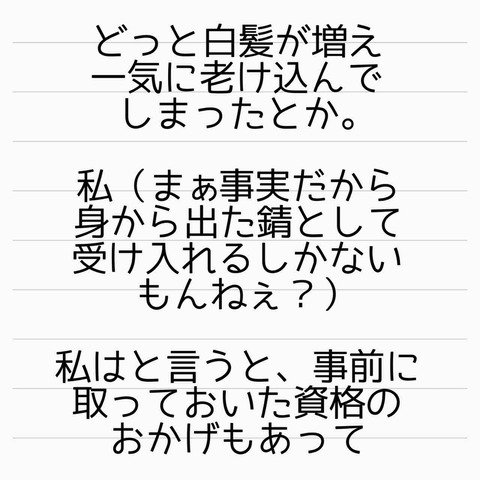 どっと白髪が増え
一気に老け込んで
しまったとか。
私（まぁ事実だから
身から出た錆として
受け入れるしかない
もんねぇ？）
私はと言うと、事前に
取っておいた資格の
おかげもあって